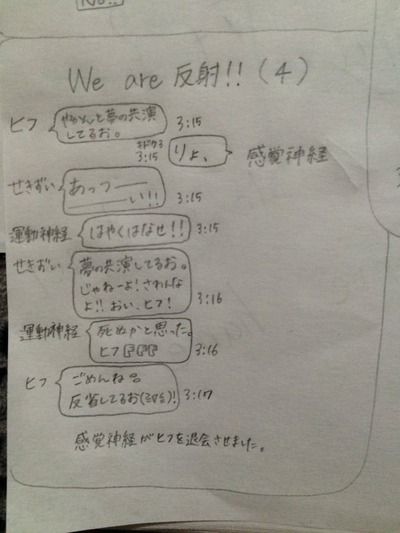 No!!
We are 反射!!(4)
ヒフ やかんと夢の共演
してるお。 3:15
キドク3
3:15 りょ、 感覚神経
せきずい あっつ——
——い!! 3:15
運動神経 はやくはなせ!! 3:15
せきずい 夢の共演してるお。
じゃねーよ!さわんな
よ!!おい、ヒフ! 3:16
運動神経 死ぬかと思った。
ヒフFFF 3:16
ヒフ ごめんね
反省してるお 3:17
感覚神経がヒフを退会させました。